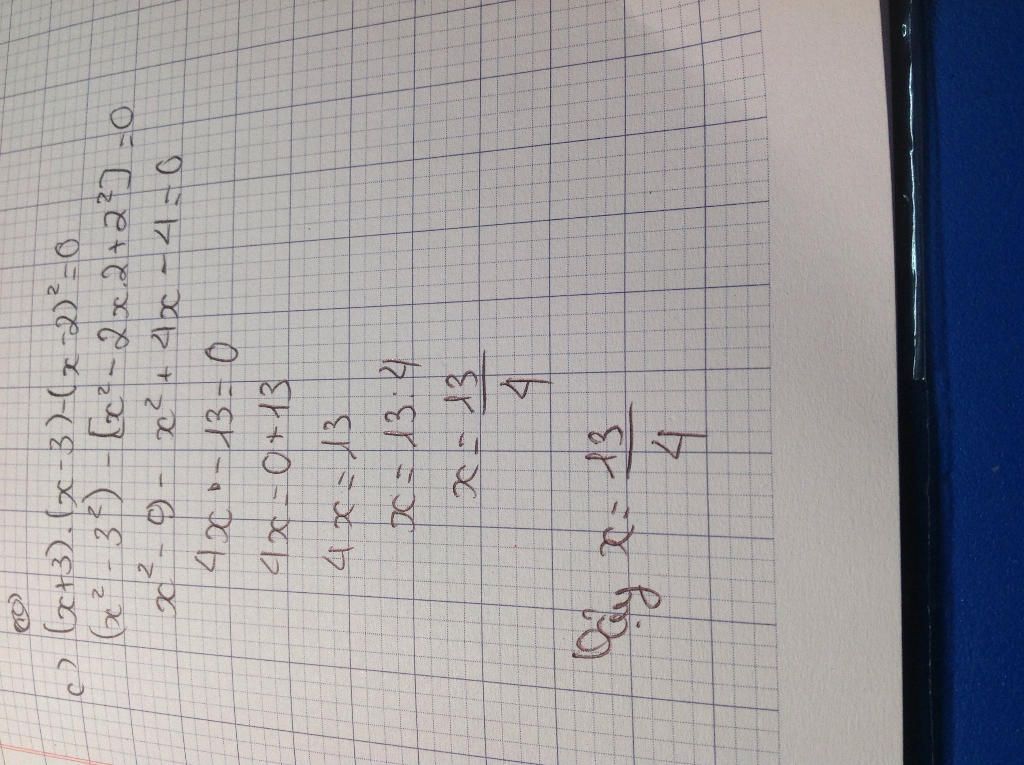 c) (x+3).(x-3)-(x-2)²=0
(x²-3²)-[x²-2x.2+2²]=0
x²-9-x²+4x-4=0
4x-13=0
4x=0+13
4x=13
x=13:4
x=13/4
Vậy x=13/4